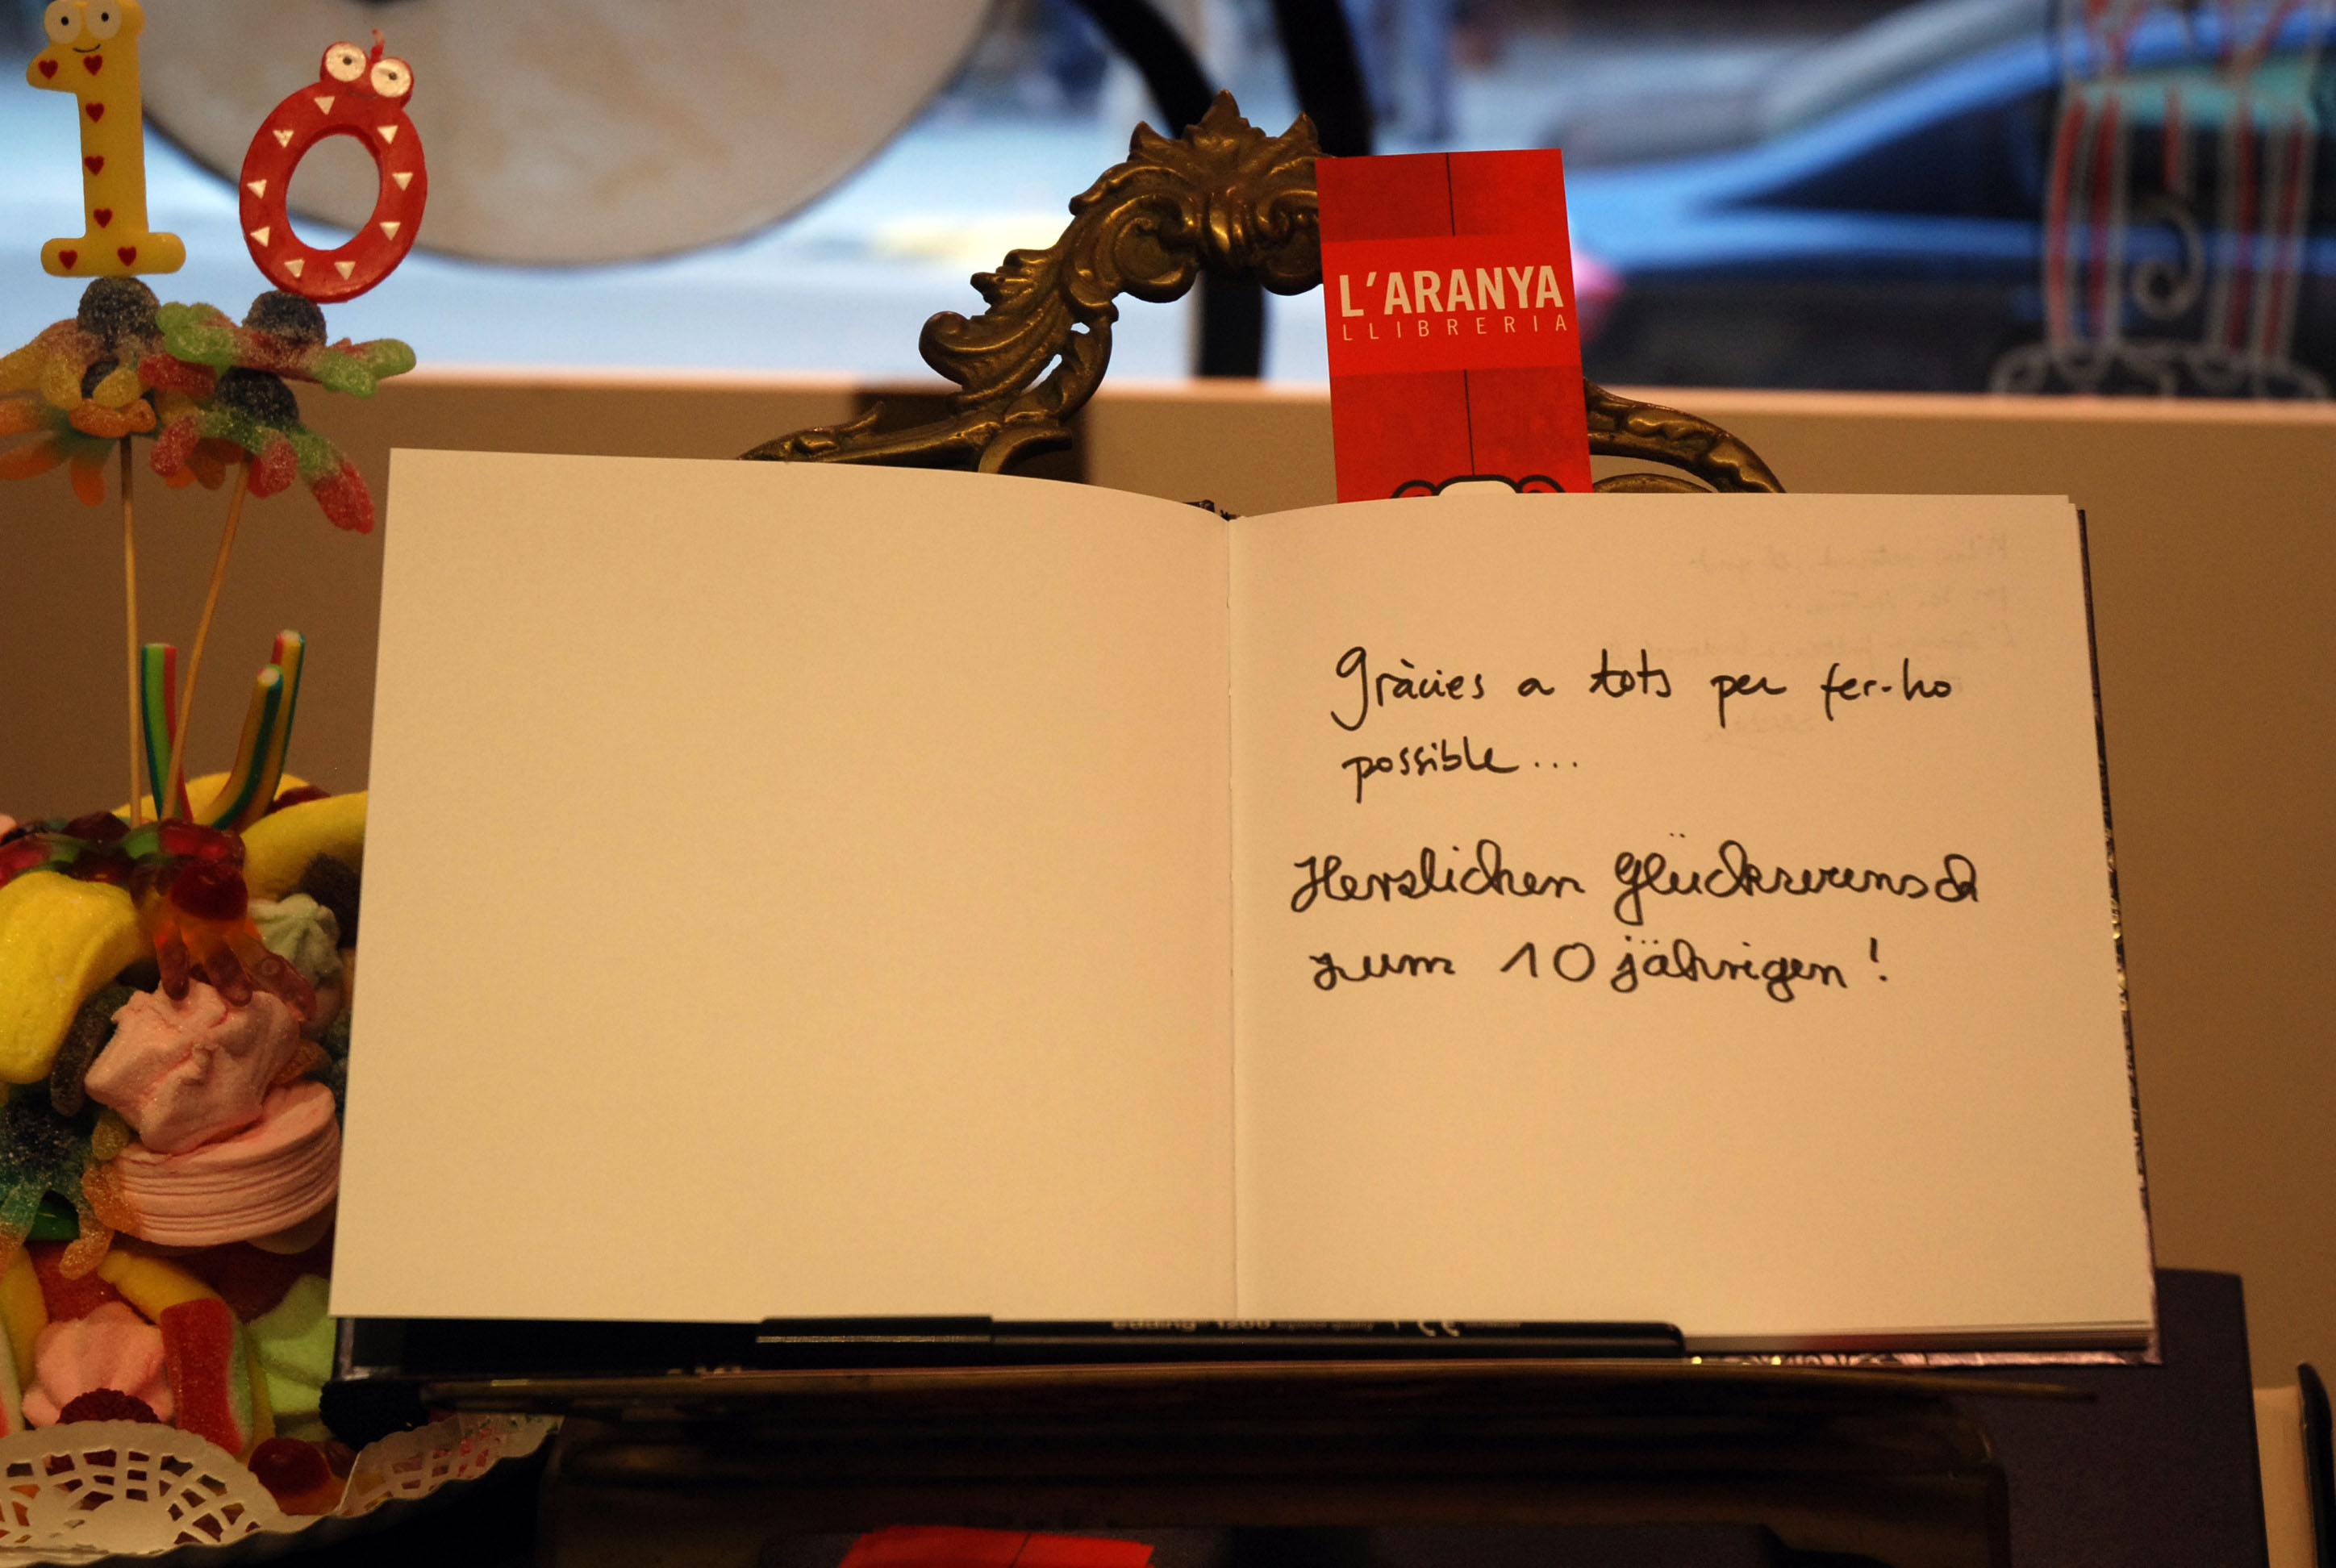 10
L'ARANYA
LLIBRERIA
Gràcies a tots per fer-ho
possible...
Herzlichen Glückwunsch
zum 10 jährigen!
edding 1200